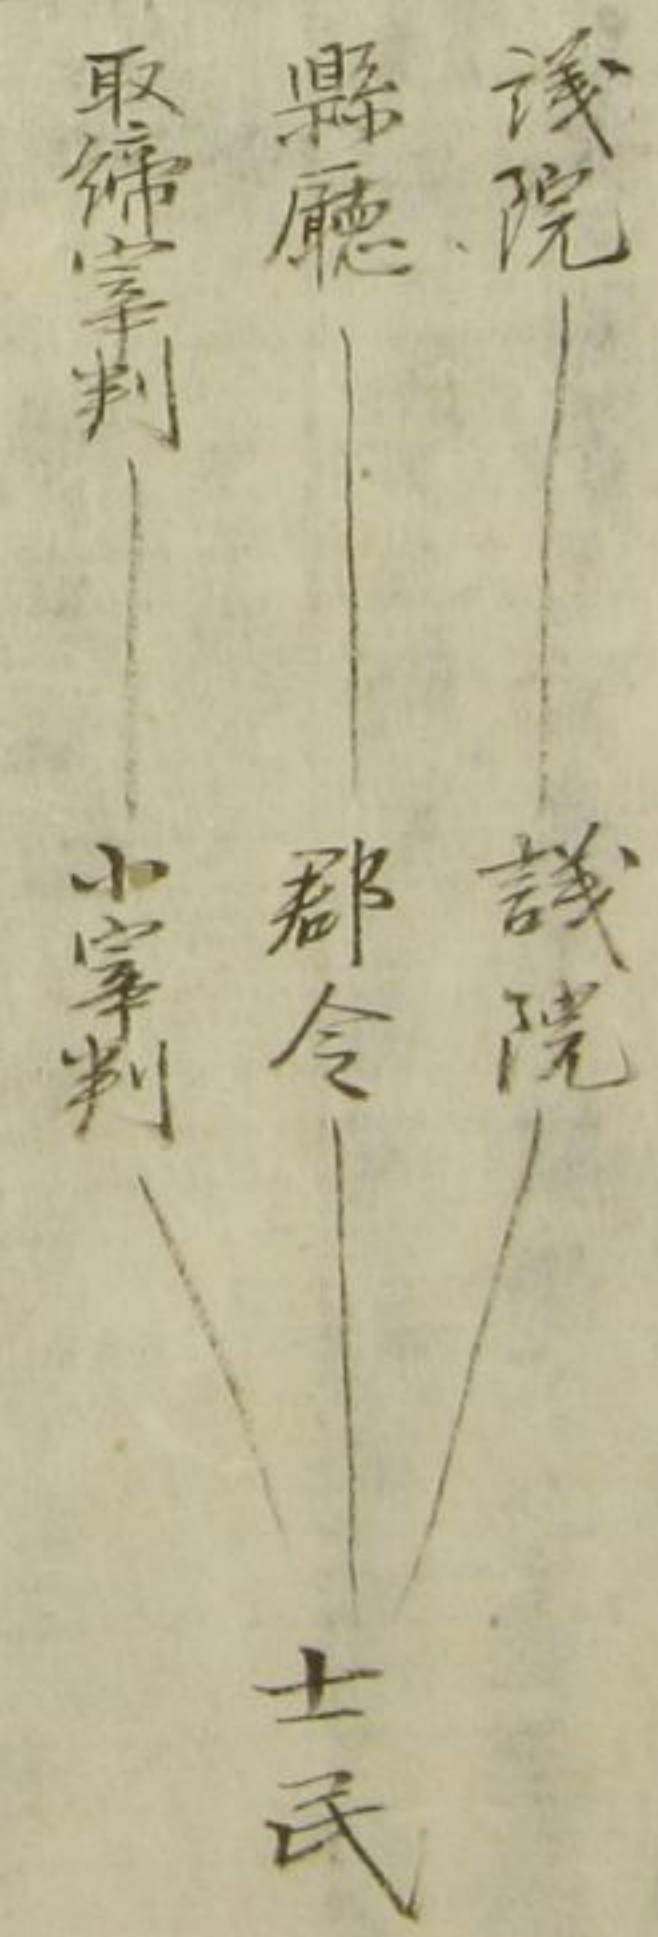 議院
縣廳
取締宰判
議院
郡令
小宰判
士民